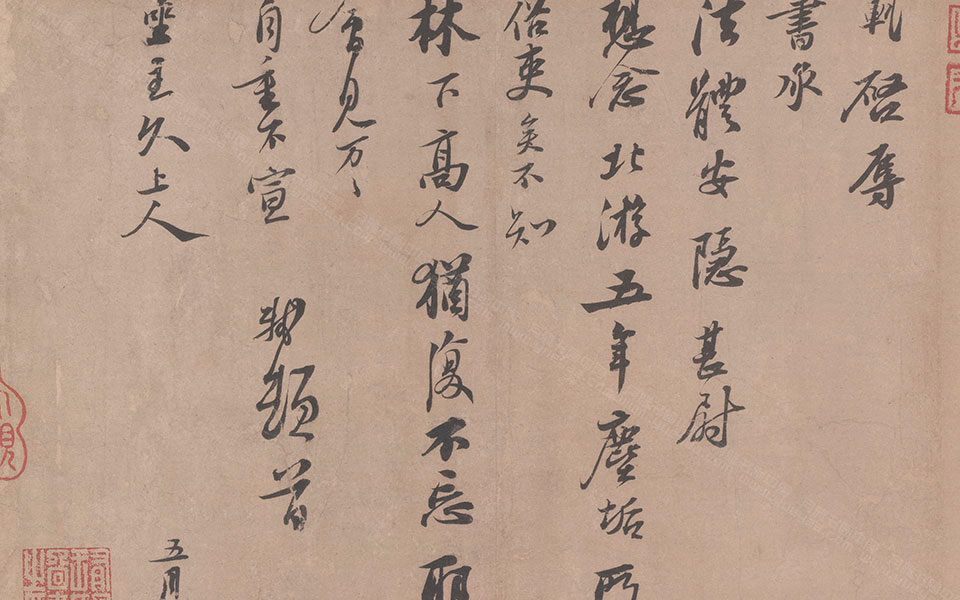 軾啓辱
書承
法體安隱甚尉
想念北游五年塵垢所
俗吏矣不知
林下高人猶復不忘耶
會見万〻
自重不宣 軾頓首
坐主久上人 五月